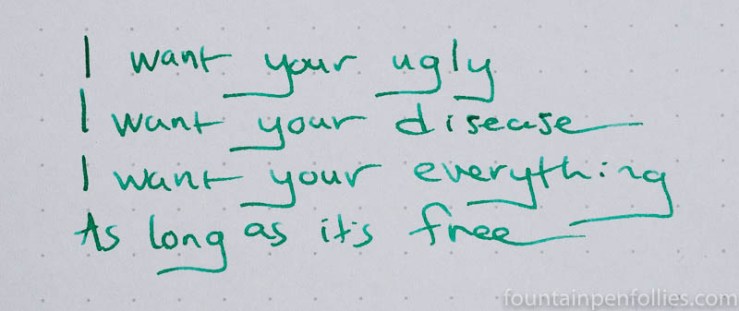 I want your ugly
I want your disease
I want your everything
As long as it's free
fountainpenfollies.com